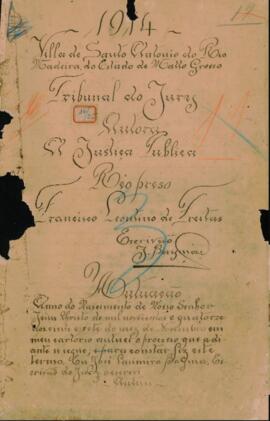 1914
Villa de Santo Antonio do Rio
Madeira, do Estado de Matto Grosso
Tribunal do Jury
Autora
A Justiça Publica
Reo preso
Francisco Leontino de Freitas
Escrivão
Autuação
Anno do Nascimento de Nosso Senhor
Jesus Christo de mil novecentos e quatorze
dezembro em
meu cartorio autuei o processo que a di
ante se segue, e para constar fiz este
termo. Eu José Casimiro
Escrivão do Jury, escrevi